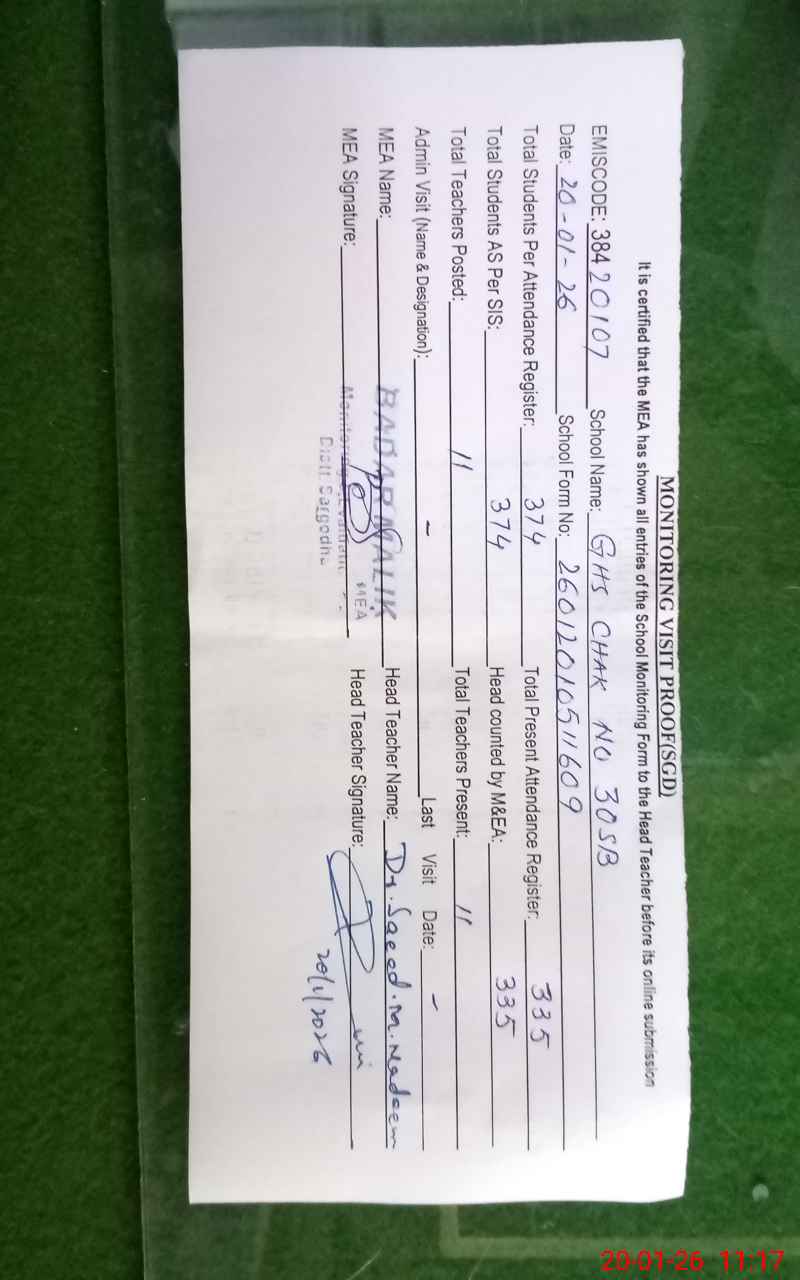 MONITORING VISIT PROOF(SGD)
It is certified that the MEA has shown all entries of the School Monitoring Form to the Head Teacher before its online submission
EMISCODE: 38420107 School Name: GHS CHAK NO 30SB
Date: 20-01-26 School Form No: 26012010511609
Total Students Per Attendance Register: 374 Total Present Attendance Register: 335
Total Students AS Per SIS: 374 Head counted by M&EA: 335
Total Teachers Posted: 11 Total Teachers Present: 11
Admin Visit (Name & Designation): - Last Visit Date: -
MEA Name: BADAR MALIK Head Teacher Name: Dr. Saeed.M.Nadeem
MEA Signature: MEA Head Teacher Signature:
Distt. Sargodha
20/1/2026
20-01-26 11:17